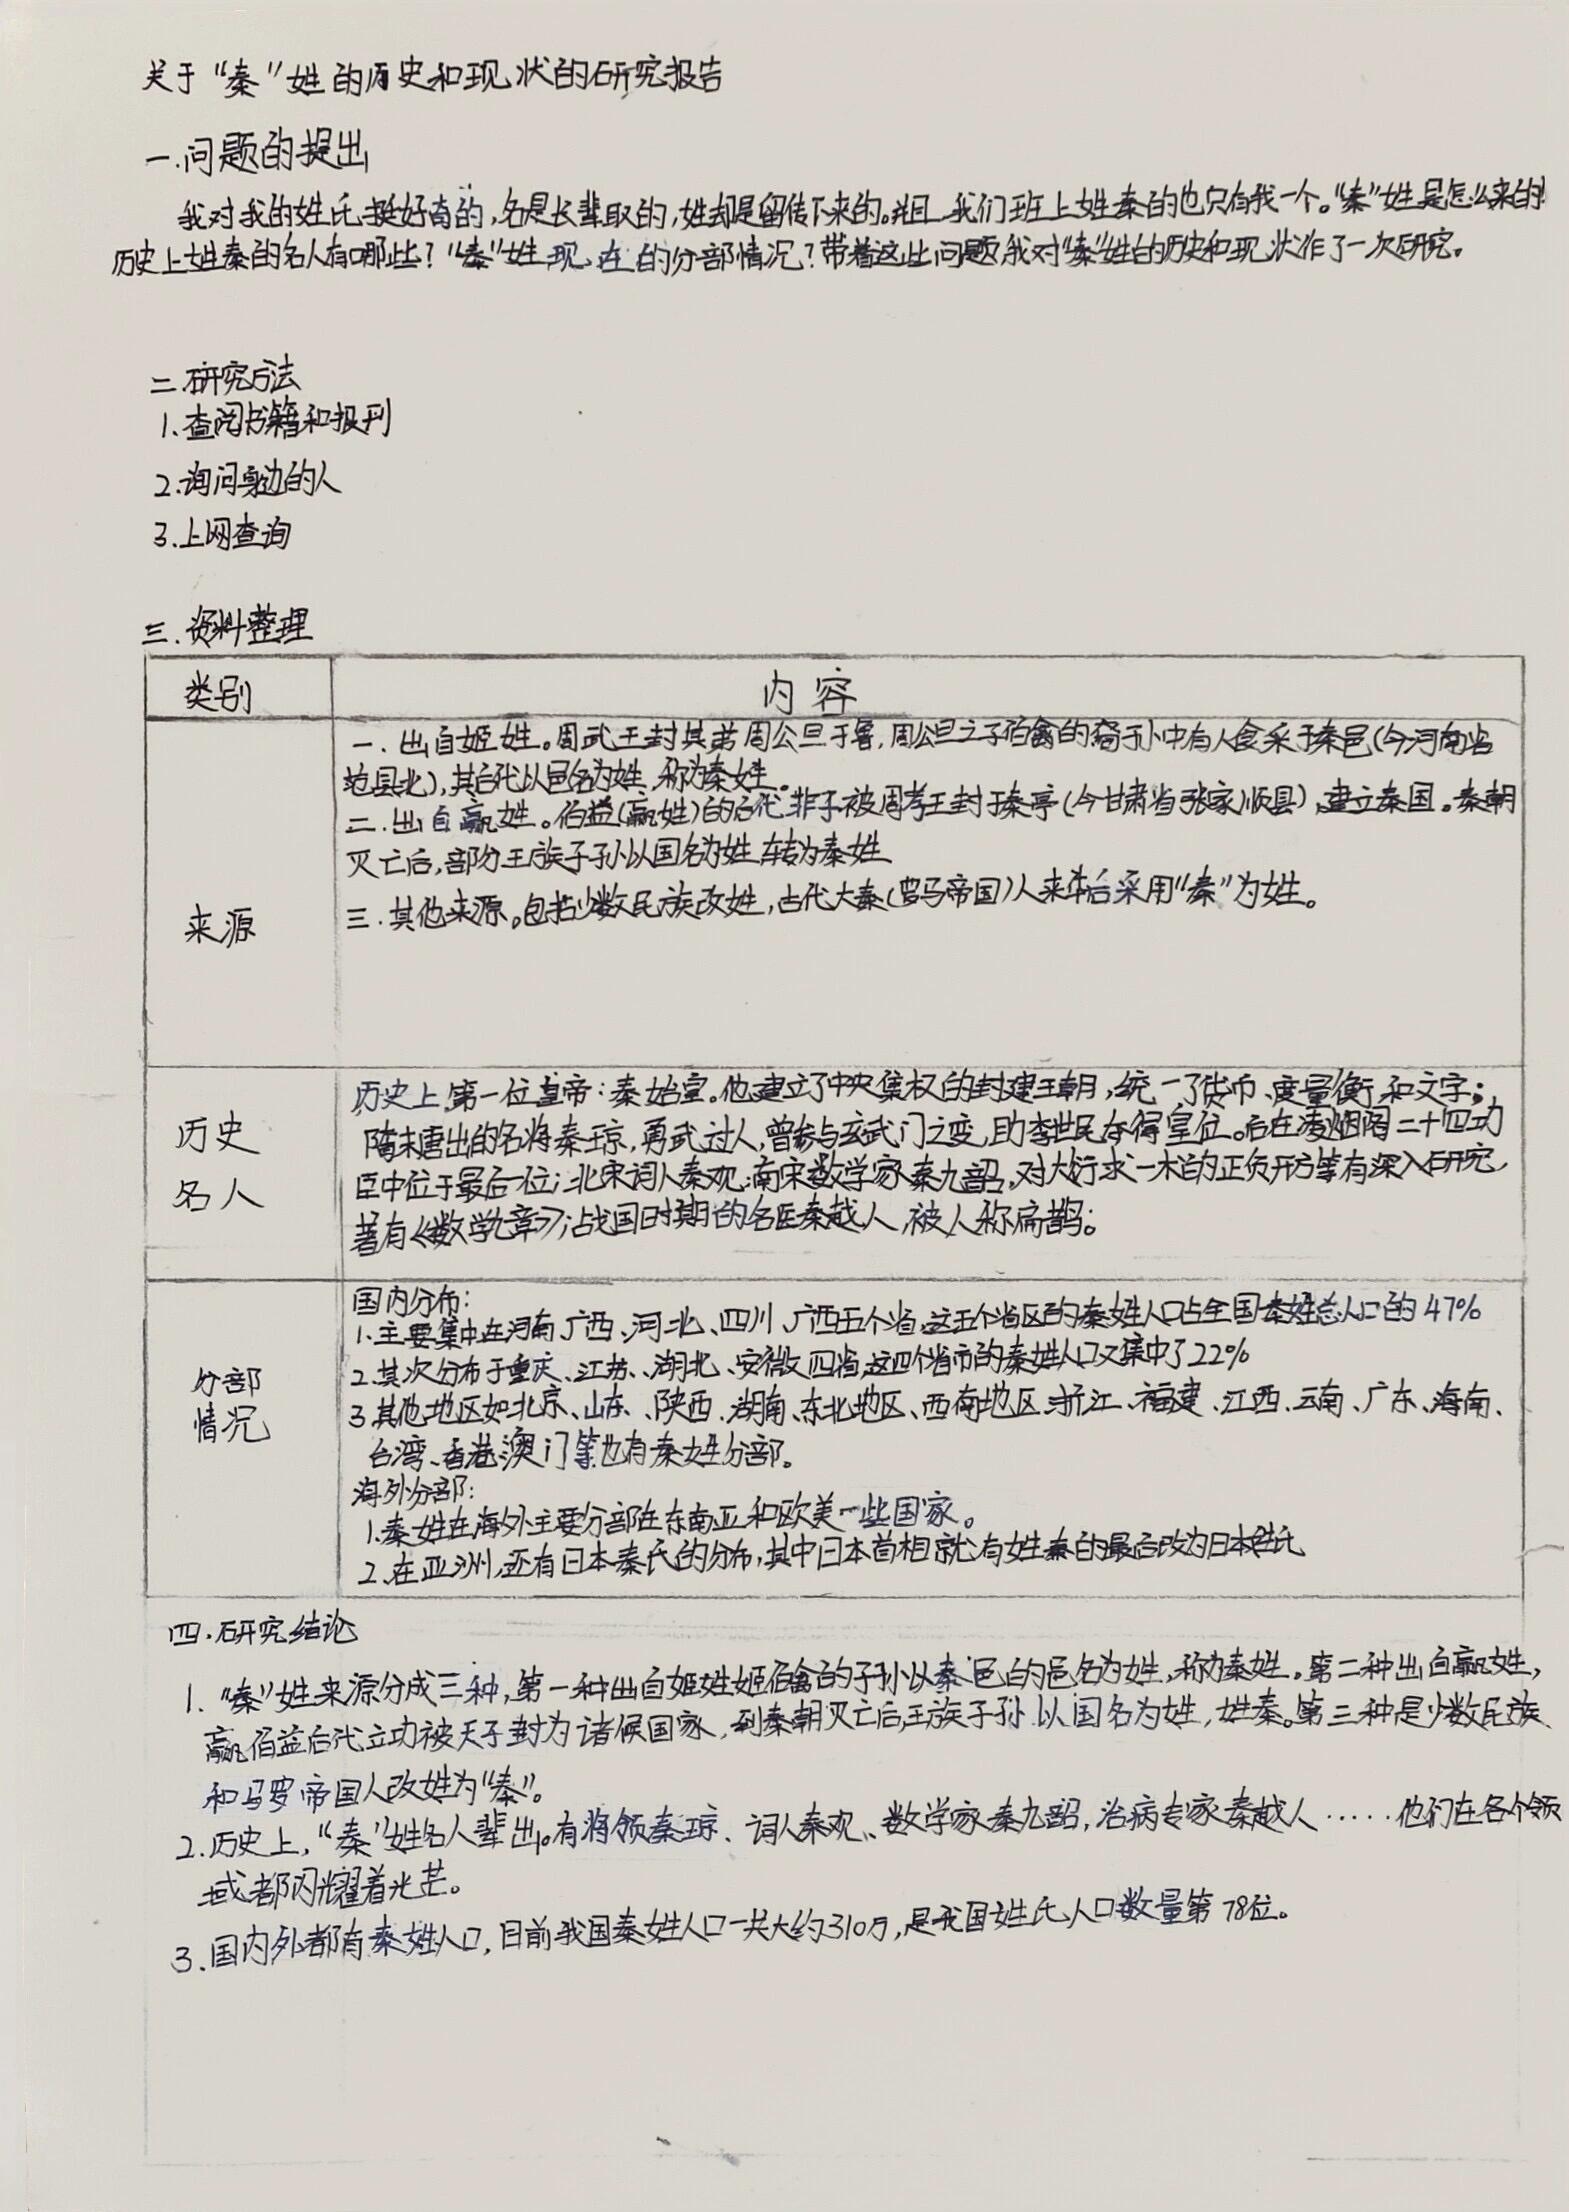 关于“秦”姓的历史和现状的研究报告
一.问题的提出
我对我的姓氏挺好奇的,名是长辈取的,姓却是留传下来的。并且我们班上姓秦的也只有我一个。“秦”姓是怎么来的!
历史上姓秦的名人有哪些?“秦”姓现在的分部情况?带着这些问题,我对“秦”姓的历史和现状作了一次研究。
二.研究方法
1.查阅书籍和报刊
2.询问身边的人
3.上网查询
三.资料整理
类别
内容
来源
一.出自姬姓。周武王封其弟周公旦于鲁,周公旦之子伯禽的裔于小中有人食采于秦邑(今河南省
范县北),其后代以邑名为姓,称为秦姓。
二.出自嬴姓。伯益(嬴姓)的后代非子被周孝王封于秦亭(今甘肃省张家川县),建立秦国。秦朝
灭亡后,部分王族子孙以国名为姓,转为秦姓
三.其他来源。包括少数民族改姓,古代大秦(罗马帝国)人来华后采用“秦”为姓。
历史
名人
历史上第一位皇帝:秦始皇。他建立了中央集权的封建王朝,统一了货币、度量衡和文字;
隋末唐出的名将秦琼,勇武过人,曾参与玄武门之变,助李世民夺得皇位。后在凌烟阁二十四功
臣中位于最后一位;北宋词人秦观;南宋数学家秦九韶,对大衍求一术的正负开方等有深入研究,
著有《数学九章》;战国时期的名医秦越人,被人称扁鹊;
分部
情况
国内分布:
1.主要集中在河南、广西、河北、四川、广西五个省,这五个省区的秦姓人口占全国秦姓总人口的47%
2.其次分布于重庆、江苏、湖北、安微四省,这四个省市的秦姓人口又集中了22%
3.其他地区如北京、山东、陕西、湖南、东北地区、西南地区、浙江、福建、江西、云南、广东、海南、
台湾、香港、澳门等也有秦姓分部。
海外分部:
1.秦姓在海外主要分部在东南亚和欧美一些国家。
2.在亚洲,还有日本秦氏的分布,其中日本首相就有姓秦的最后改为日本姓氏
四.研究结论
1.“秦”姓来源分成三种,第一种出自姬姓姬伯禽的子孙以秦邑的邑名为姓,称为秦姓。第二种出自嬴姓,
嬴伯益后代立功被天子封为诸候国家,到秦朝灭亡后,王族子孙以国名为姓,姓秦。第三种是少数民族
和马罗帝国人改姓为“秦”。
2.历史上,“秦”姓名人辈出。有将领秦琼、词人秦观、数学家秦九韶,治病专家秦越人……他们在各个领
域都闪耀着光芒。
3.国内外都有秦姓人口,目前我国秦姓人口一共大约310万,是我国姓氏人口数量第78位。